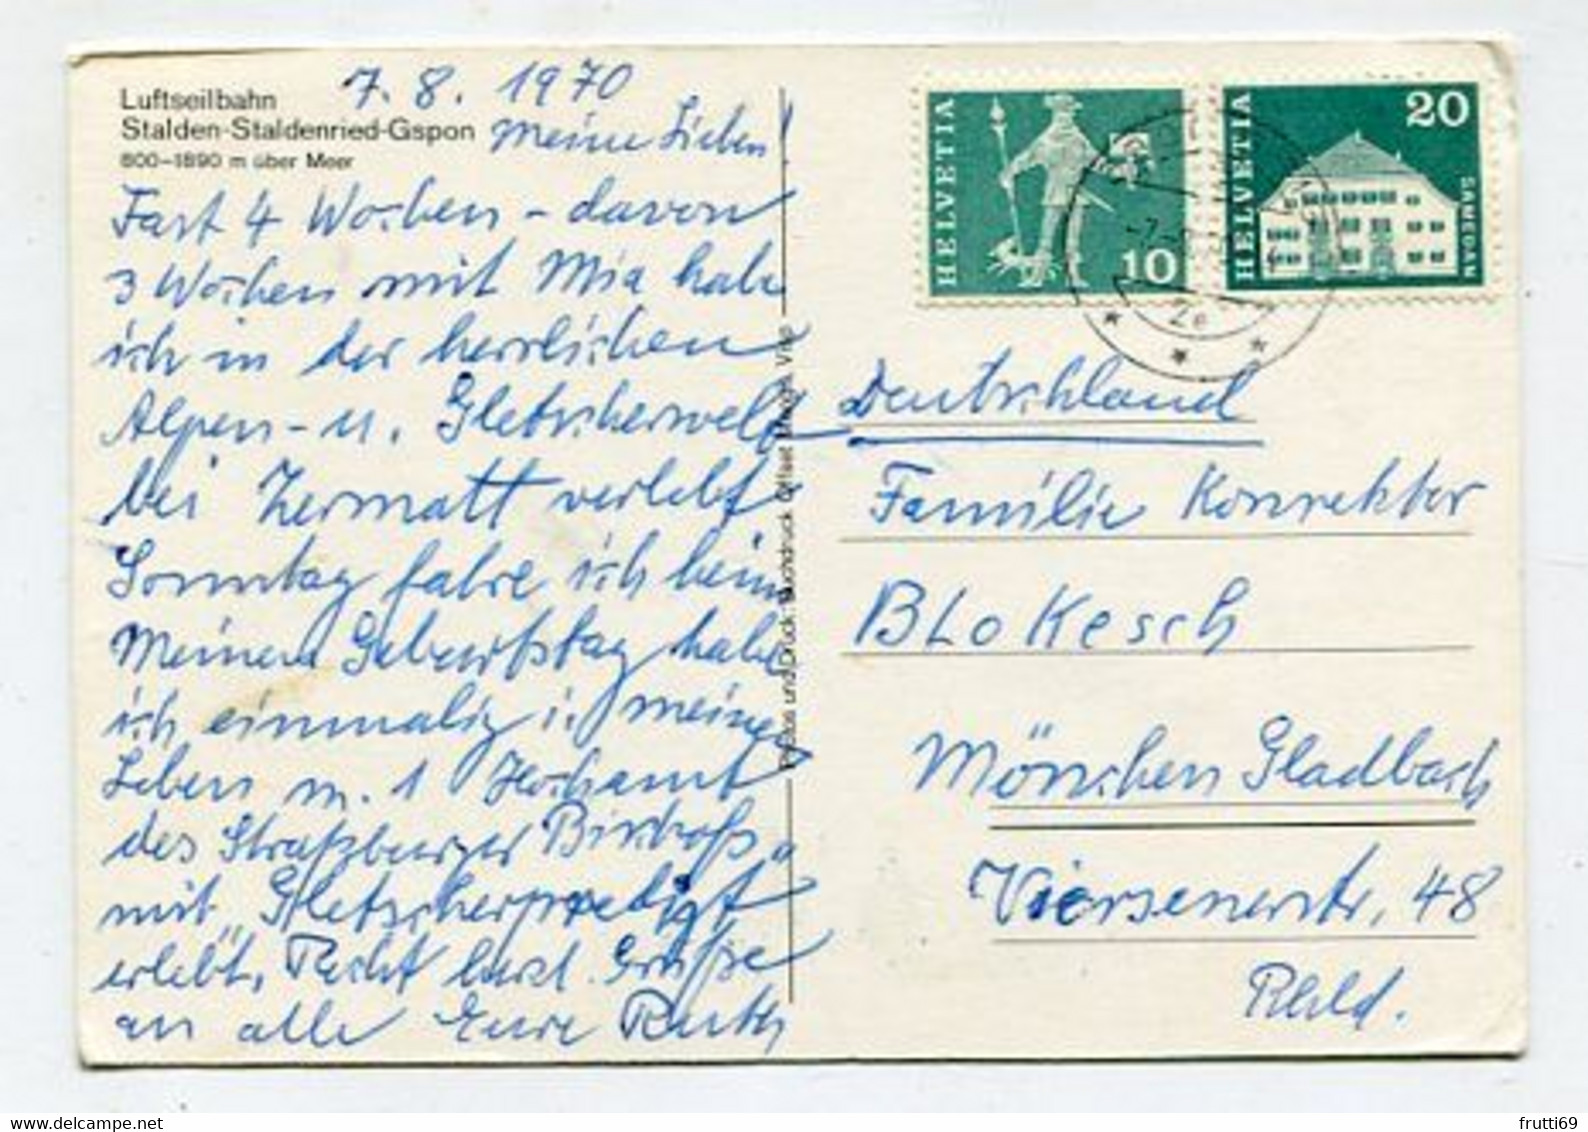 Luftseilbahn
Stalden-Staldenried-Gspon
800–1890 m über Meer
7. 8. 1970
Meine Lieben!
Fast 4 Wochen - davon
3 Wochen mit Mia habe
ich in der herrlichen
Alpen- u. Gletscherwelt
bei Zermatt verlebt
Sonntag fahre ich heim
Meinen Geburtstag habe
ich einmalig i. meinem
Leben m. 1 Hochamt
des Straßburger Bischofs u
mit "Gletscherpredigt"
erlebt. Recht herzl. Grüße
an alle Eure Ruth
Fotos und Druck: Buchdruck Offset Visp
HELVETIA
10
HELVETIA
20
SAMEDAN
Deutschland
Familie Konrektor
BLoKesch
Mönchen Gladbach
Viersenerstr. 48
Rhld.
frutti69